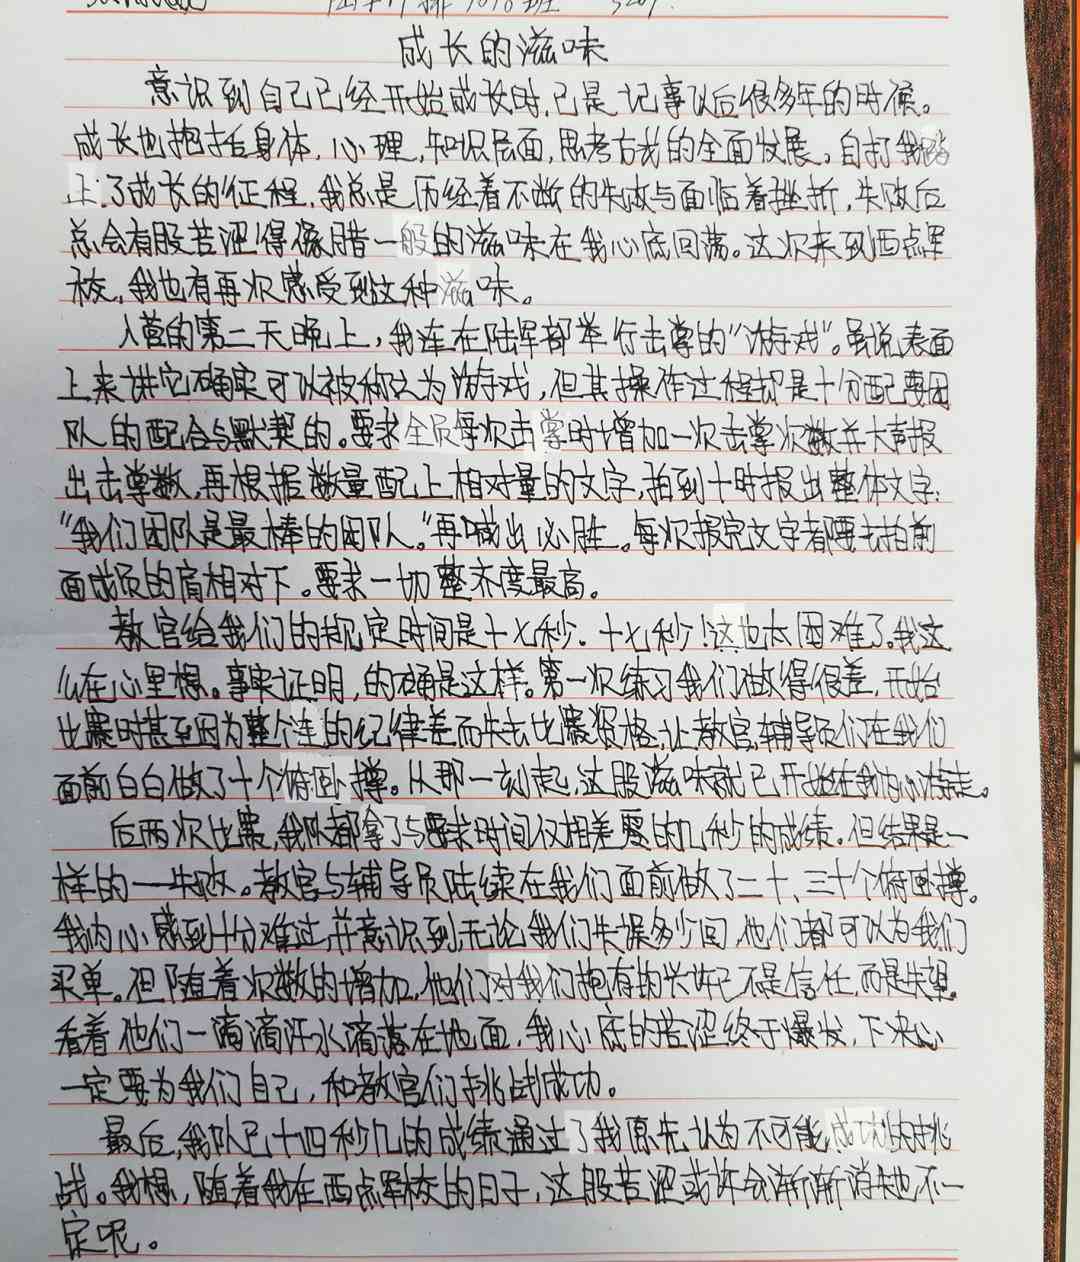 成长的滋味
意识到自己已经开始成长时,已是记事以后很多年的时候。
成长也抱括身体,心理,知识层面,思考方式的全面发展。自打我踏
上了成长的征程,我总是历经着不断的失败与面临着挫折,失败后
总会有股苦涩得像腊一般的滋味在我心底回荡。这次来到西点军
校,我也有再次感受到这种滋味。
入营的第二天晚上,我连在陆军部举行击掌的“游戏”。虽说表面
上来讲它确实可以被称之为游戏,但其操作过程却是十分配要团
队的配合与默契的。要求全员每次击掌时增加一次击掌次数并大声报
出击掌数,再根据数量配上相对量的文字,拍到十时报出整体文字:
“我们团队是最棒的团队。”再喊出必胜。每次报完文字都要去拍前
面成员的肩相对下。要求一切整齐度最高。
教官给我们的规定时间是十七秒.十七秒!这也太困难了。我这
么在心里想。事实证明,的确是这样。第一次练习我们做得很差,开始
比赛时甚至因为整个连的纪律差而失去比赛资格,让教官,辅导员们在我们
面前白白做了十个俯卧撑。从那一刻起,这股滋味就已开始在我内心游走。
后两次比赛,我队都拿了与要求时间仅相差零的几秒的成绩。但结果是一
样的——失败。教官与辅导员陆续在我们面前做了二十、三十个俯卧撑。
我内心感到十分难过,并意识到,无论我们失误多少回,他们都可以为我们
买单。但随着次数的增加,他们对我们抱有的兴许已不是信任,而是失望。
看着他们一滴滴汗水滴落在地面,我心底的苦涩终于爆发,下决心
一定要为我们自己,和教官们挑战成功。
最后,我队已十四秒几的成绩通过了我原先认为不可能成功的挑
战。我想,随着我在西点军校的日子,这股苦涩或许会渐渐消失也不一
定呢。